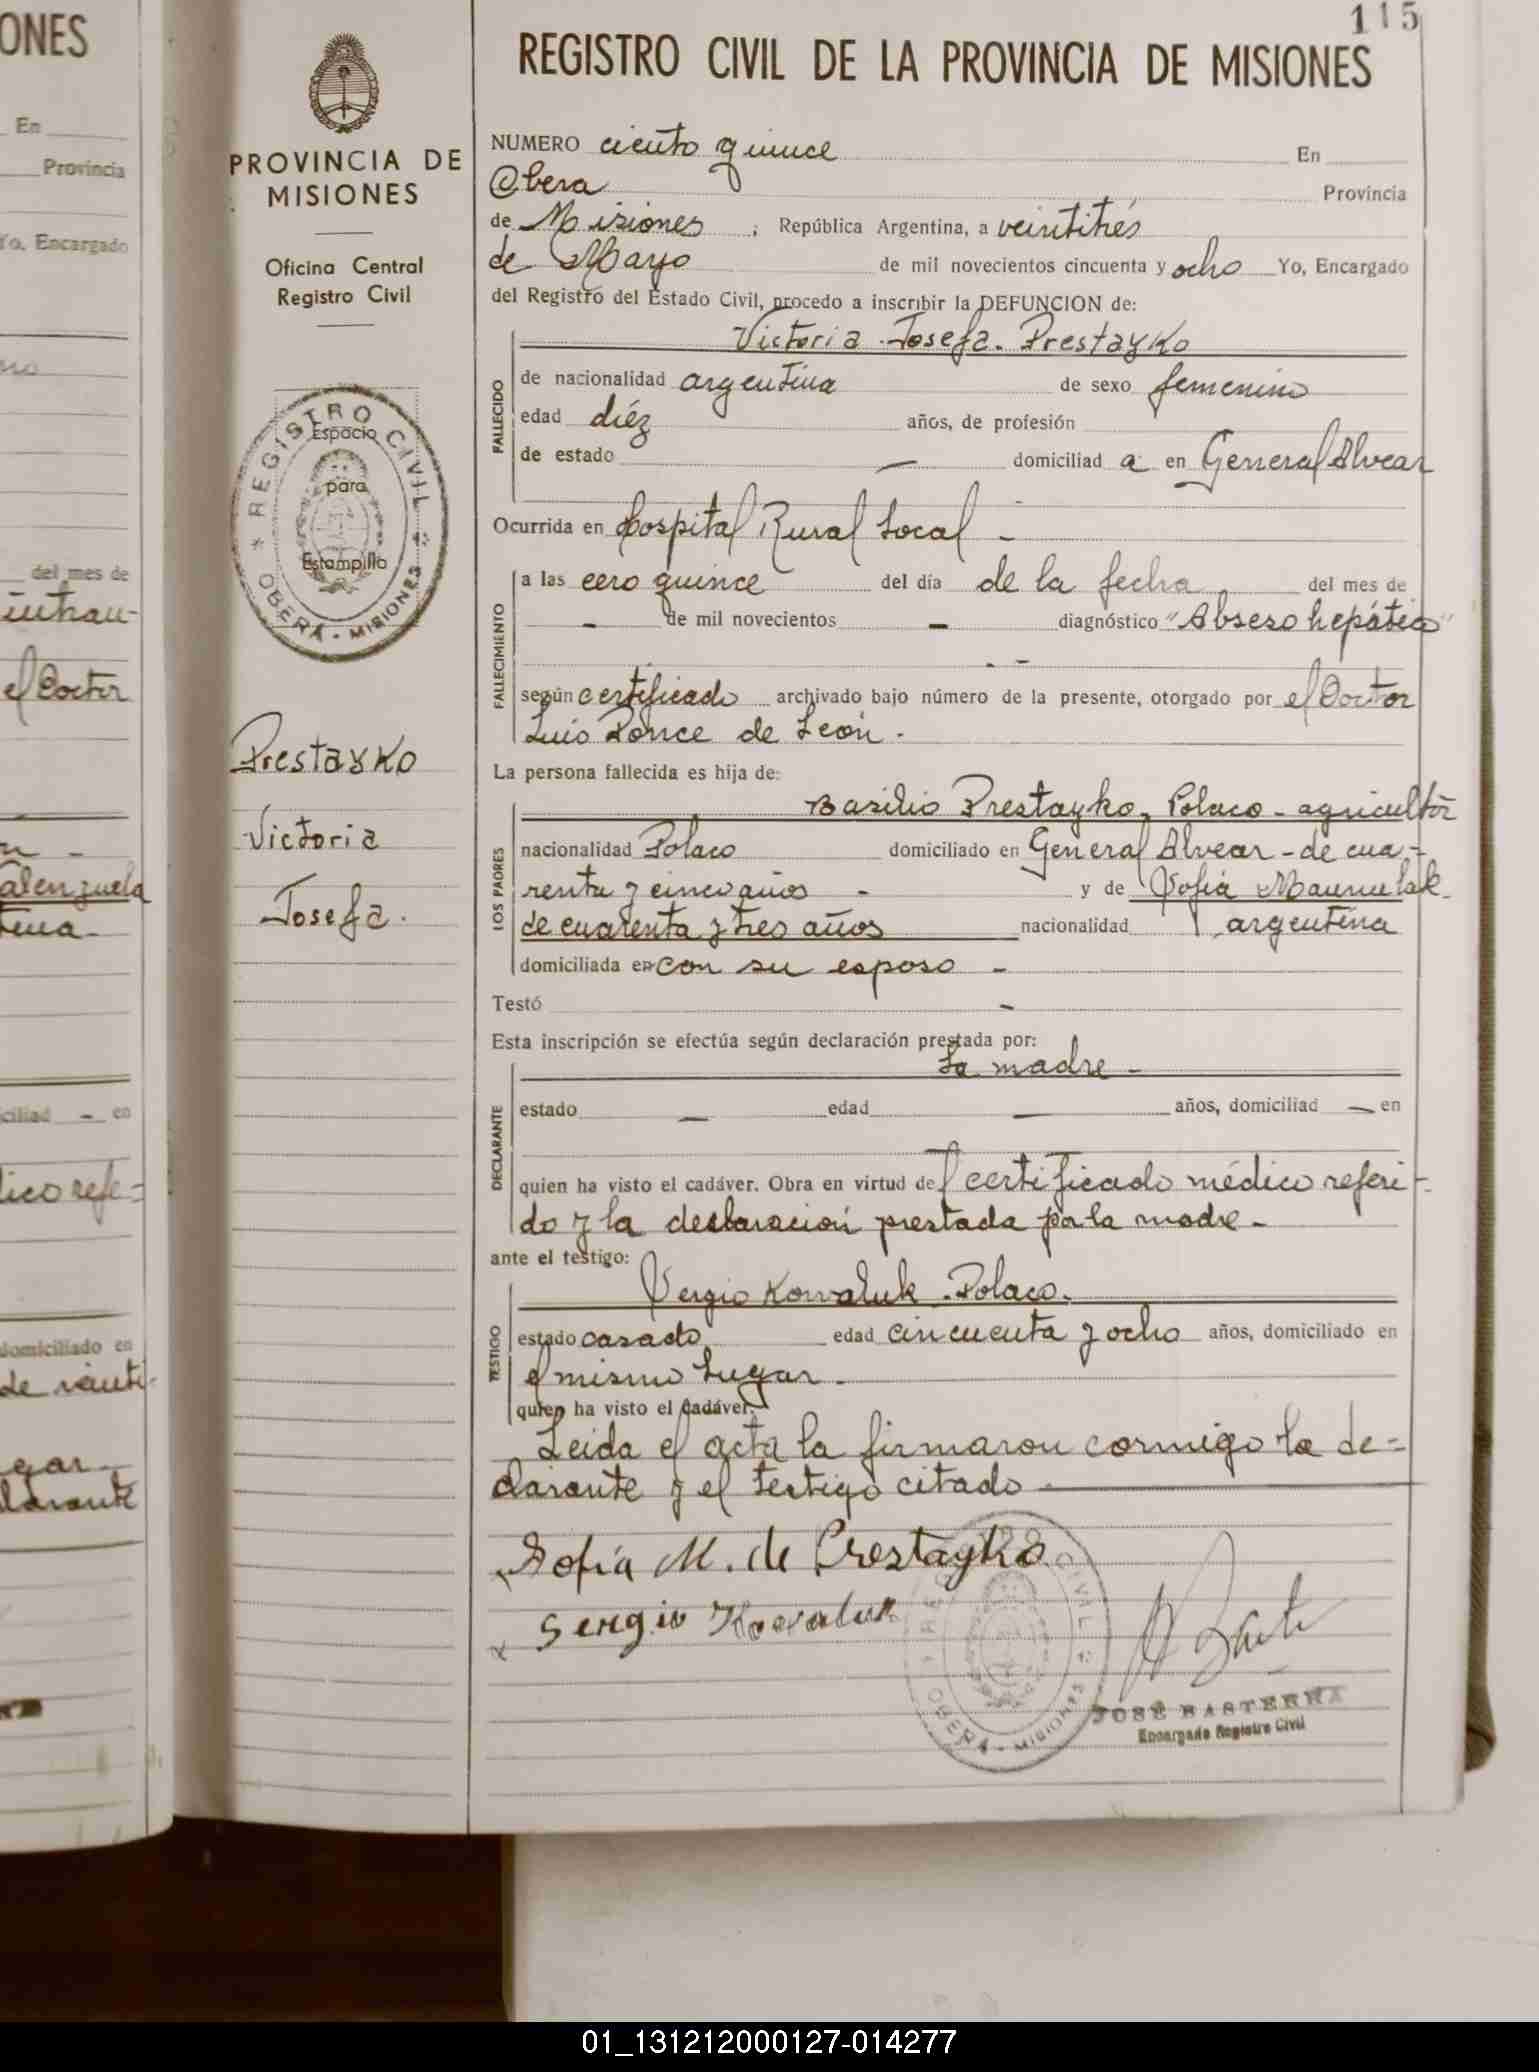 115
REGISTRO CIVIL DE LA PROVINCIA DE MISIONES
PROVINCIA DE
MISIONES
Oficina Central
Registro Civil
REGISTRO CIVIL
OBERÁ - MISIONES
Espacio
para
Estampilla
Prestayko
Victoria
Josefa.
NUMERO ciento quince En
Obera Provincia
de Misiones, República Argentina, a veintitrés
de Mayo de mil novecientos cincuenta y ocho Yo, Encargado
del Registro del Estado Civil, procedo a inscribir la DEFUNCION de:
Victoria Josefa. Prestayko
FALLECIDO
de nacionalidad argentina de sexo femenino
edad diéz años, de profesión
de estado — domiciliad a en General Alvear
Ocurrida en Hospital Rural Local -
FALLECIMIENTO
a las cero quince del día de la fecha del mes de
- de mil novecientos - diagnóstico "Abseso hepático"
según certificado archivado bajo número de la presente, otorgado por el Doctor
Luís Ponce de León.
La persona fallecida es hija de:
Basilio Prestayko, Polaco - agricultor
LOS PADRES
nacionalidad Polaco domiciliado en General Alvear - de cua-
renta y cinco años - y de Sofía
de cuarenta y tres años nacionalidad argentina
domiciliada en con su esposo -
Testó -
Esta inscripción se efectúa según declaración prestada por:
La madre -
DECLARANTE
estado — edad — años, domiciliad — en
quien ha visto el cadáver. Obra en virtud del certificado médico referi-
do y la declaración prestada por la madre -
ante el testigo:
Sergio Kowaluk. Polaco.
TESTIGO
estado casado edad cincuenta y ocho años, domiciliado en
el mismo Lugar -
quien ha visto el cadáver.
Leida el acta la firmaron conmigo la de-
clarante y el testigo citado —
Sofía M. de Prestayko
Sergio Kowaluk
REGISTRO CIVIL
OBERÁ - MISIONES
JOSÉ BASTERRA
Encargado Registro Civil
ONES
En
Provincia
Yo, Encargado
del mes de
el Doctor
ciliad - en
domiciliado en
01_131212000127-014277